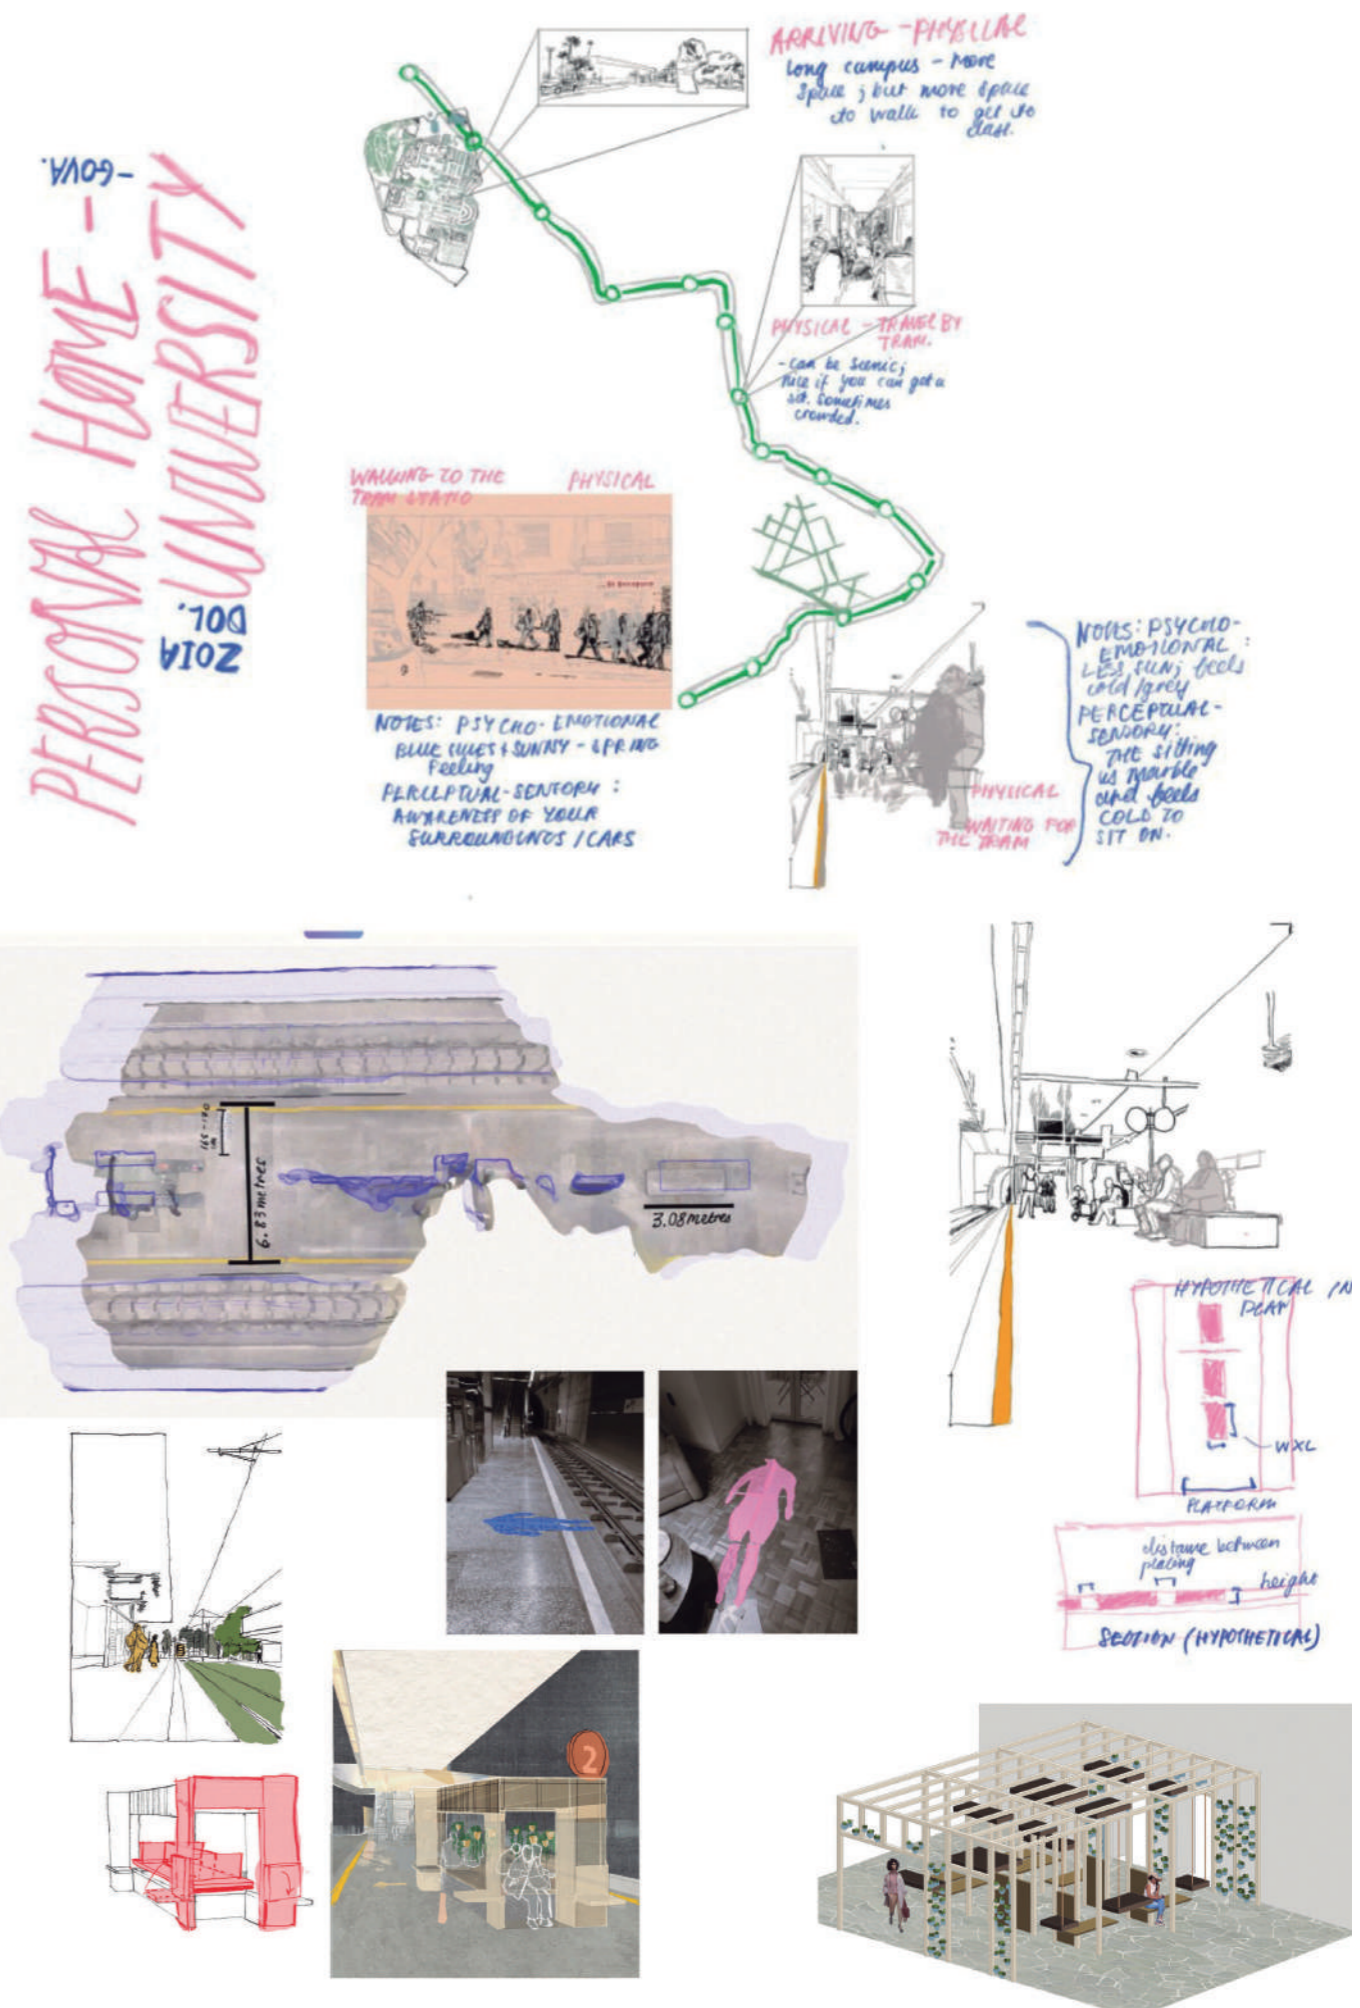 PERSONAL HOME -
UNIVERSITY
ZOIA
DOL.
-GOVA.
ARRIVING - PHYSICAL
Long campus - More
space ; but more space
to walk to get to
class.
PHYSICAL - TRAVEL BY
TRAM.
- can be scenic;
nice if you can get a
sit. sometimes
crowded.
WALKING TO THE
TRAM STATIO
PHYSICAL
NOTES: PSYCHO-EMOTIONAL
BLUE SKIES & SUNNY - SPRING
Feeling
PERCEPTUAL-SENSORY :
AWARENESS OF YOUR
SURROUNDINGS / CARS
PHYSICAL
WAITING FOR
THE TRAM
NOTES: PSYCHO-
EMOTIONAL :
LESS SUN; feels
cold/grey
PERCEPTUAL-
SENSORY:
THE sitting
is marble
and feels
COLD TO
SIT ON.
165-170
6.83 metres
3.08 metres
HYPOTHETICAL IN
PLAN
WXL
PLATFORM
distance between
placing
height
SECTION (HYPOTHETICAL)
2